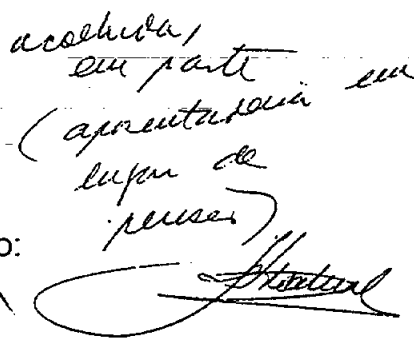 acolhida,
em parte
(aposentadoria em
lugar de
pensão)
o: